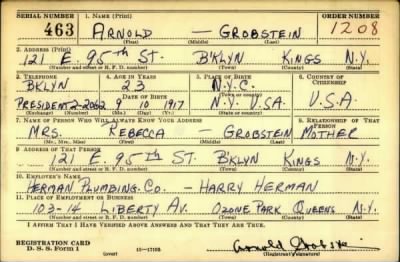 SERIAL NUMBER 1. NAME (Print) ORDER NUMBER
463 ARNOLD — GROBSTEIN 1208
(First) (Middle) (Last)
2. ADDRESS (Print)
121 E. 95th ST. B'KLYN KINGS N.Y.
(Number and street or R. F. D. number) (Town) (County) (State)
3. TELEPHONE 4. AGE IN YEARS 5. PLACE OF BIRTH 6. COUNTRY OF CITIZENSHIP
BKLYN 23 N.Y.C.
(Town or county)
PRESIDENT 2-2062 9 10 1917 N.Y. USA U.S.A.
(Exchange) (Number) (Mo.) (Day) (Yr.) (State or country)
7. NAME OF PERSON WHO WILL ALWAYS KNOW YOUR ADDRESS 8. RELATIONSHIP OF THAT PERSON
MRS. REBECCA — GROBSTEIN MOTHER
(Mr., Mrs., Miss) (First) (Middle) (Last)
9. ADDRESS OF THAT PERSON
121 E. 95th ST. B'KLYN KINGS N.Y.
(Number and street or R. F. D. number) (Town) (County) (State)
10. EMPLOYER'S NAME
HERMAN PLUMBING. CO. — HARRY HERMAN
11. PLACE OF EMPLOYMENT OR BUSINESS
103-14 LIBERTY AV. OZONE PARK QUEENS N.Y.
(Number and street or R. F. D. number) (Town) (County) (State)
I AFFIRM THAT I HAVE VERIFIED ABOVE ANSWERS AND THAT THEY ARE TRUE.
REGISTRATION CARD
D. S. S. Form 1 (over) Arnold Grobstein
(Registrant's signature)